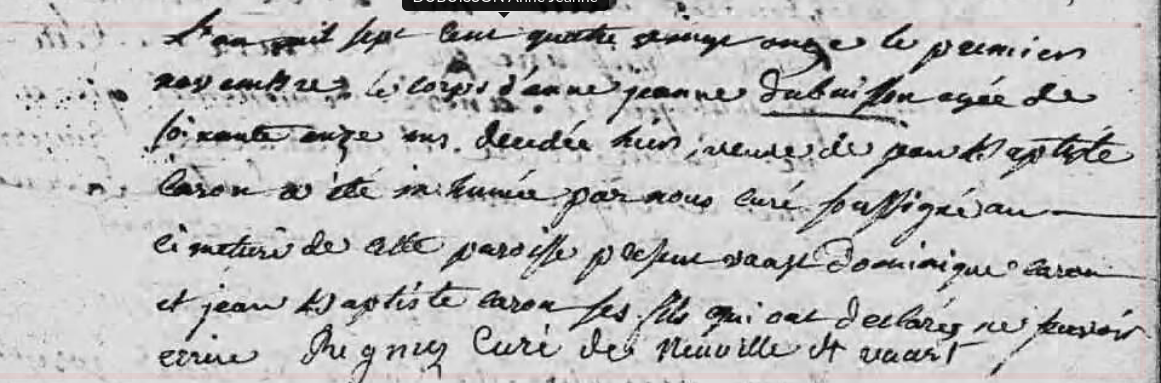 DUBUISSON Anne Jeanne
L'an mil sept cent quatre vingt onze le premier
novembre le corps d'anne jeanne Dubuisson agée de
soixante onze ans decedée hier, veuve de jean Baptiste
Caron a été inhumée par nous curé soussigné au
cimetiere de cette paroisse present vaast Dominique caron
et jean Baptiste caron ses fils qui ont declarés ne sçavoir
ecrire Regniez Curé de Neuville St vaast